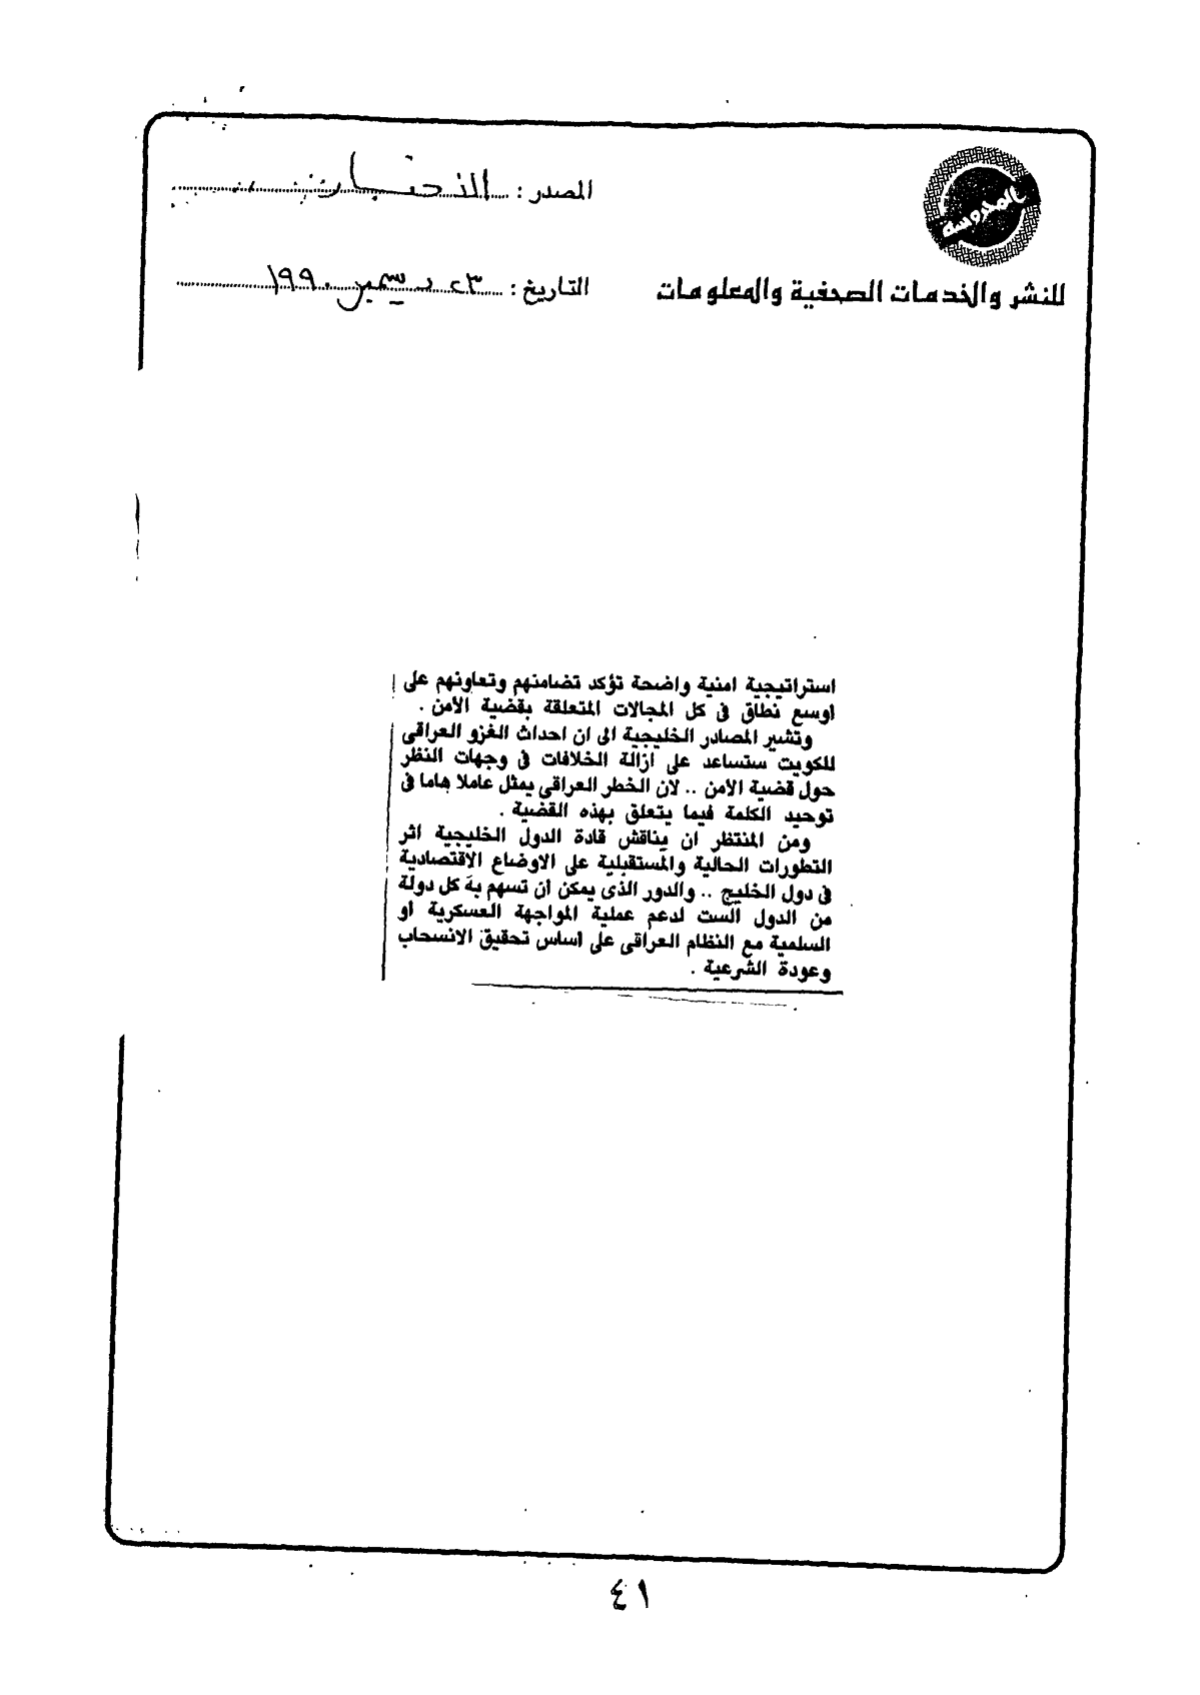 المحروسة
المصدر : الاخبار
للنشر والخدمات الصحفية والمعلومات
التاريخ : ٢٣ ديسمبر ١٩٩٠
استراتيجية امنية واضحة تؤكد تضامنهم وتعاونهم على
اوسع نطاق فى كل المجالات المتعلقة بقضية الأمن .
وتشير المصادر الخليجية الى ان احداث الغزو العراقى
للكويت ستساعد على ازالة الخلافات فى وجهات النظر
حول قضية الأمن .. لان الخطر العراقى يمثل عاملا هاما فى
توحيد الكلمة فيما يتعلق بهذه القضية .
ومن المنتظر ان يناقش قادة الدول الخليجية اثر
التطورات الحالية والمستقبلية على الاوضاع الاقتصادية
فى دول الخليج .. والدور الذى يمكن ان تسهم به كل دولة
من الدول الست لدعم عملية المواجهة العسكرية أو
السلمية مع النظام العراقى على أساس تحقيق الانسحاب
وعودة الشرعية .
٤١